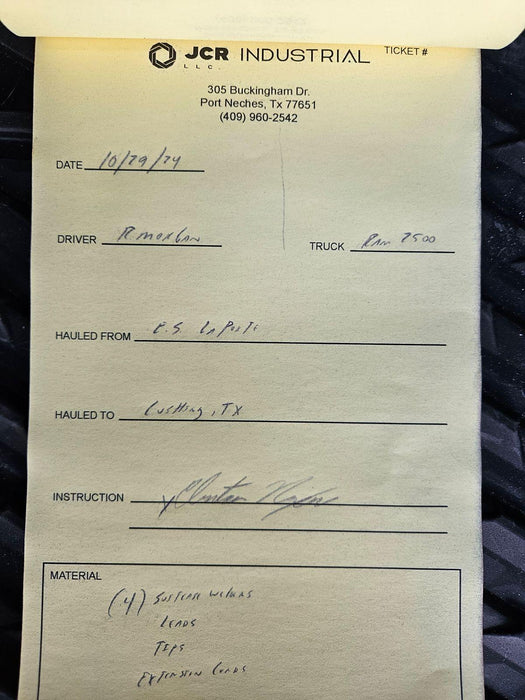 JCR INDUSTRIAL TICKET #
L L C.
305 Buckingham Dr.
Port Neches, Tx 77651
(409) 960-2542
DATE 10/29/24
DRIVER R. MORGAN TRUCK RAM 2500
HAULED FROM LaPorte
HAULED TO Cushing, TX
INSTRUCTION
MATERIAL
(4) welders
LEADS
TIPS
EXTENSION CORDS